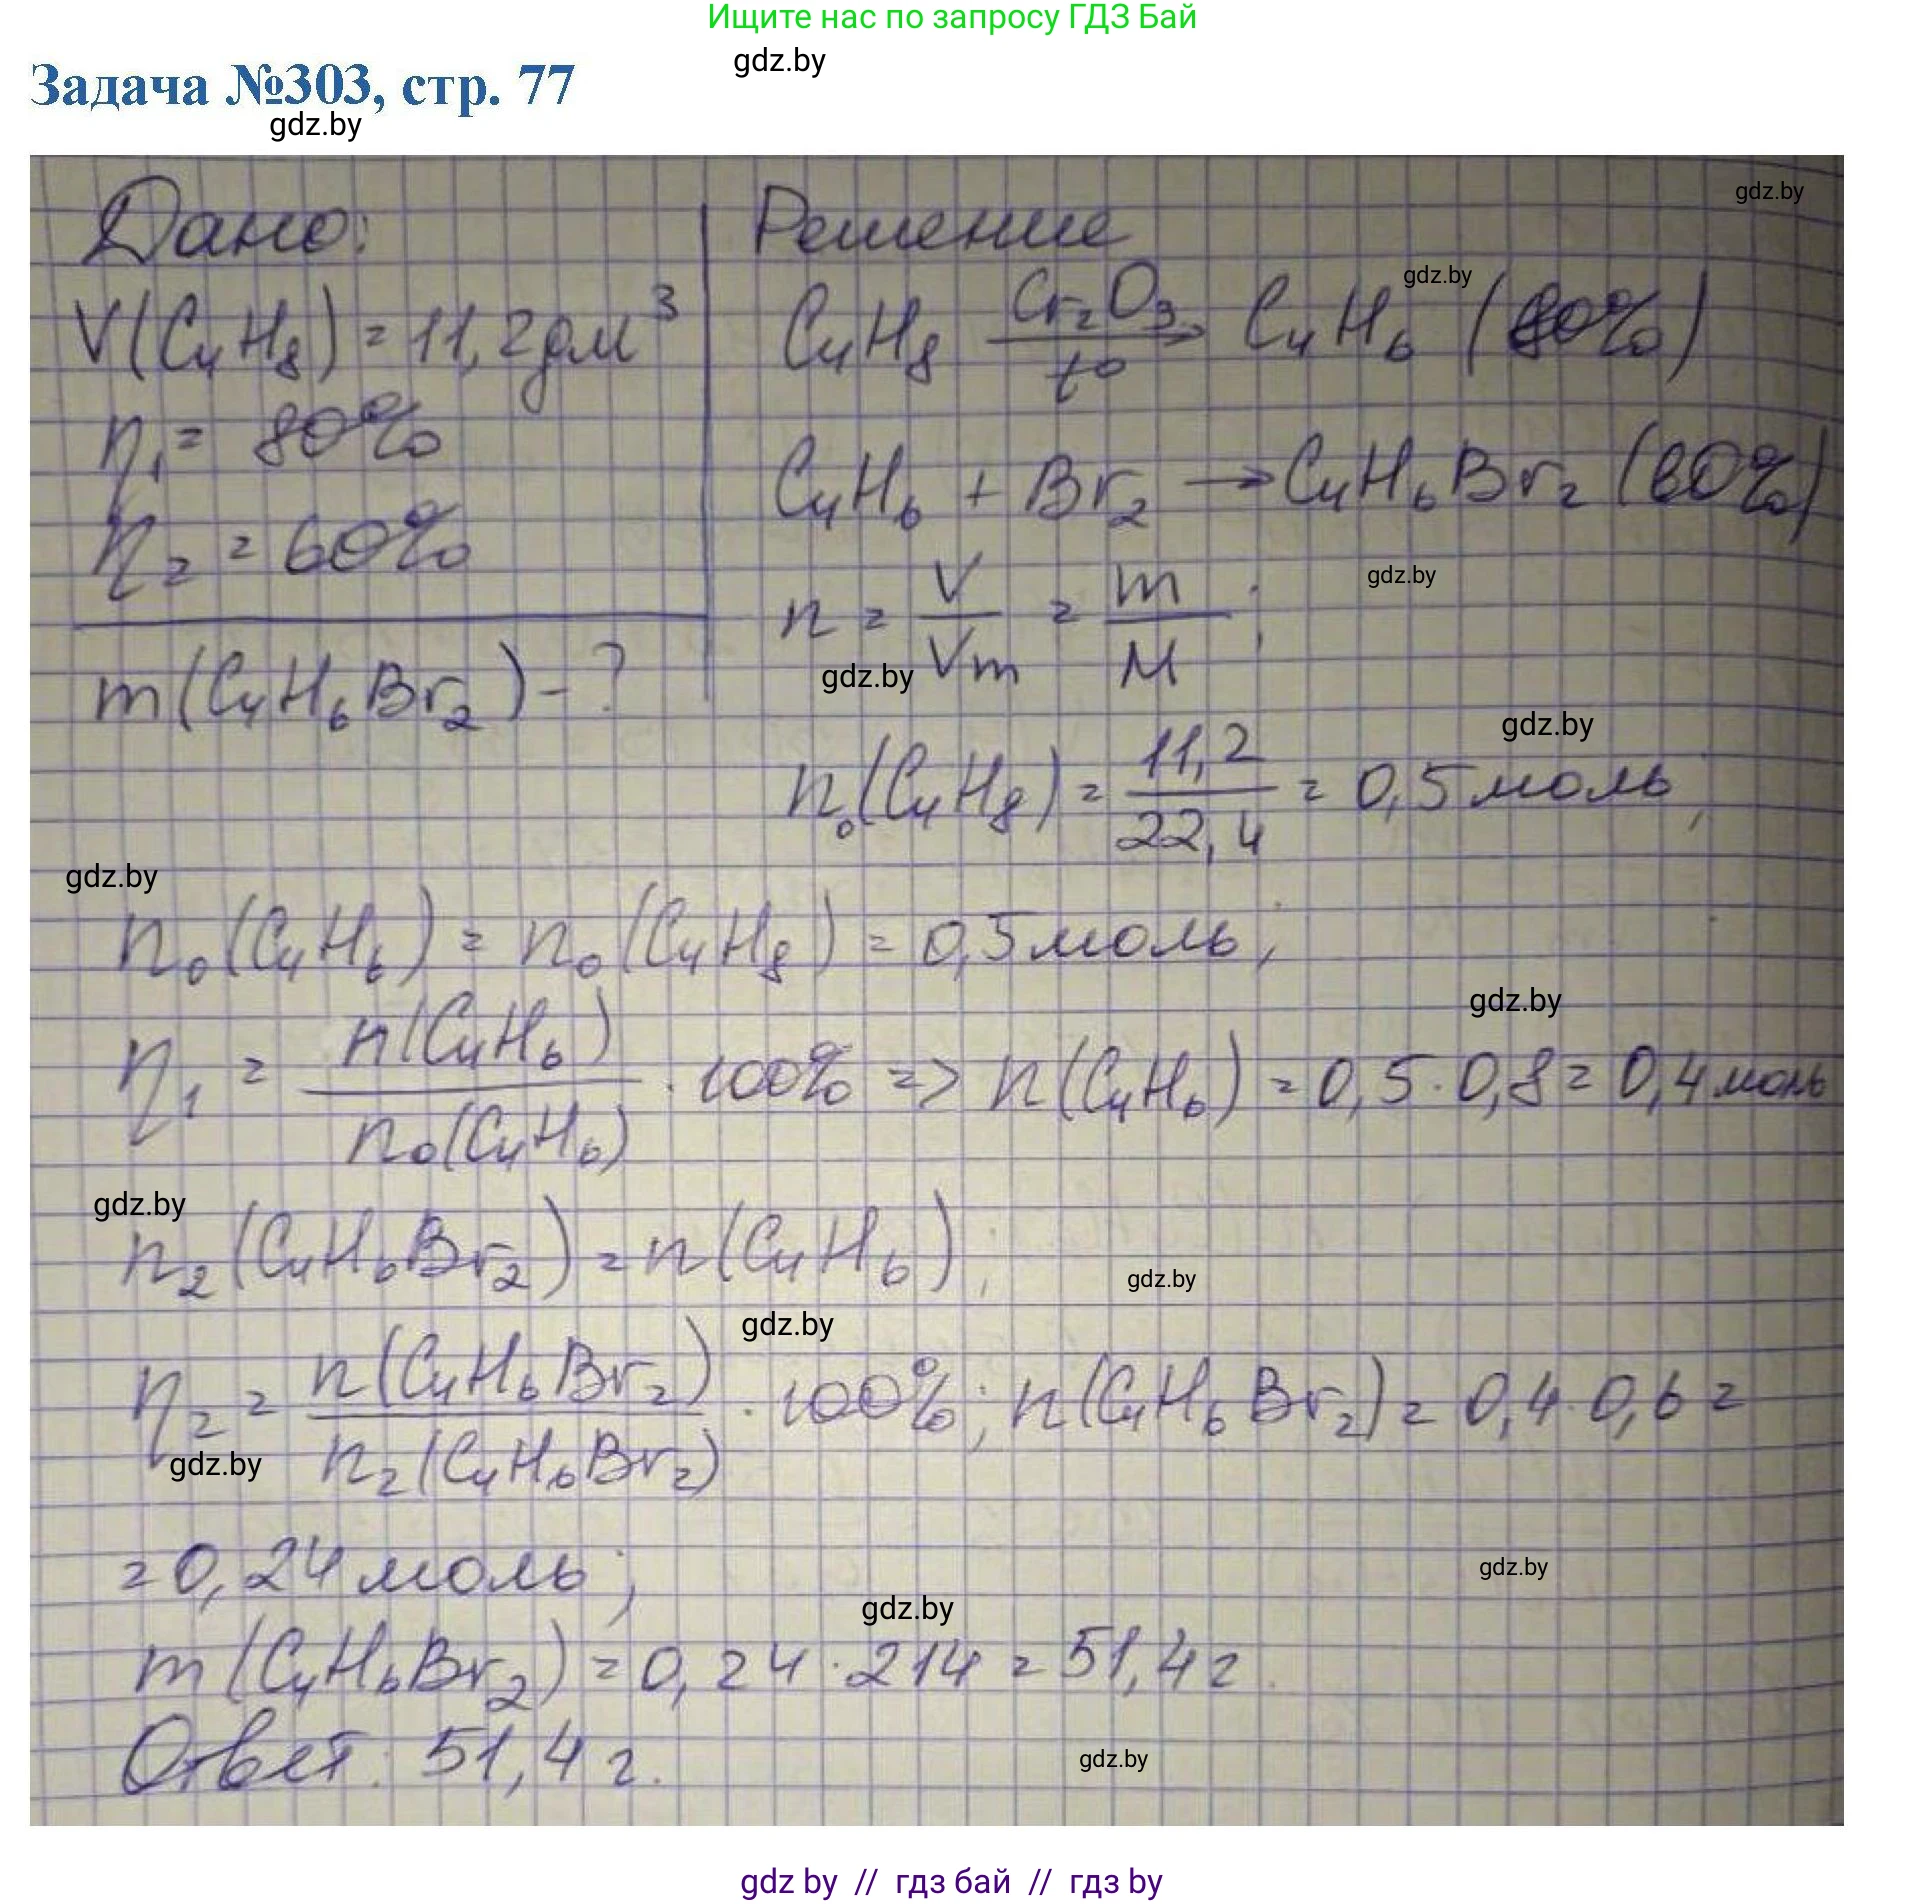 Ищите нас по запросу ГДЗ Бай
gdz.by
Задача №303, стр. 77
gdz.by
Дано:
V(C₄H₈) = 11,2 дм³
η₁ = 80%
η₂ = 60%
m(C₄H₆Br₂) - ?
Решение
gdz.by
gdz.by
C₄H₈ Cr₂O₃ → t° C₄H₆ (80%)
C₄H₆ + Br₂ → C₄H₆Br₂ (60%)
gdz.by
n = V/Vm = m/M;
gdz.by
gdz.by
n₀(C₄H₈) = 11,2/22,4 = 0,5 моль;
gdz.by
n₀(C₄H₆) = n₀(C₄H₈) = 0,5 моль;
gdz.by
η₁ = n(C₄H₆)/n₀(C₄H₆) · 100% => n(C₄H₆) = 0,5 · 0,8 = 0,4 моль
gdz.by
n₂(C₄H₆Br₂) = n(C₄H₆);
gdz.by
gdz.by
η₂ = n(C₄H₆Br₂)/n₂(C₄H₆Br₂) · 100%; n(C₄H₆Br₂) = 0,4 · 0,6 =
gdz.by
= 0,24 моль;
gdz.by
gdz.by
m(C₄H₆Br₂) = 0,24 · 214 = 51,4 г.
Ответ: 51,4 г.
gdz.by
gdz by // гдз бай // гдз by